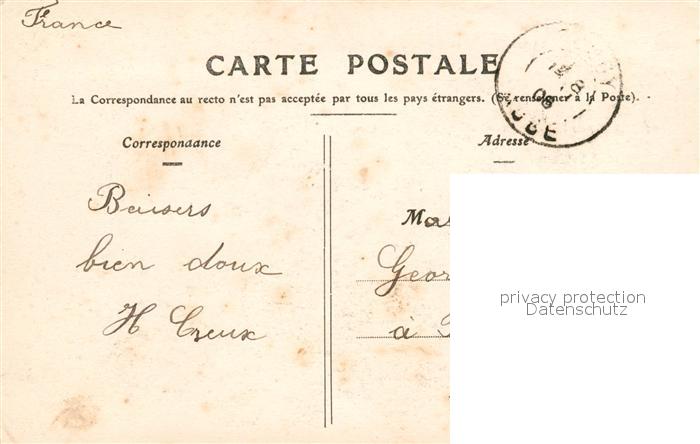 France
CARTE POSTALE
La Correspondance au recto n'est pas acceptée par tous les pays étrangers. (Se renseigner à la Poste).
Correspondance
Adresse
AUBE
Baisers
bien doux
H Creux
Geor
à
privacy protection
Datenschutz